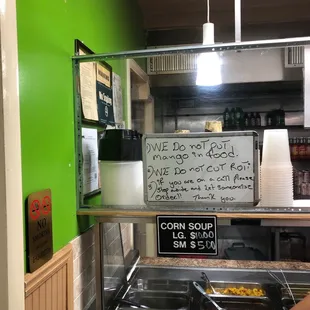 1) WE DO NOT PUT
Mango in food.
2) WE DO NOT CUT ROTI
3) If you are on a cell
step aside and let someone else
order!!
Thank you.
CORN SOUP
LG. $10.00
SM $5.00
NO